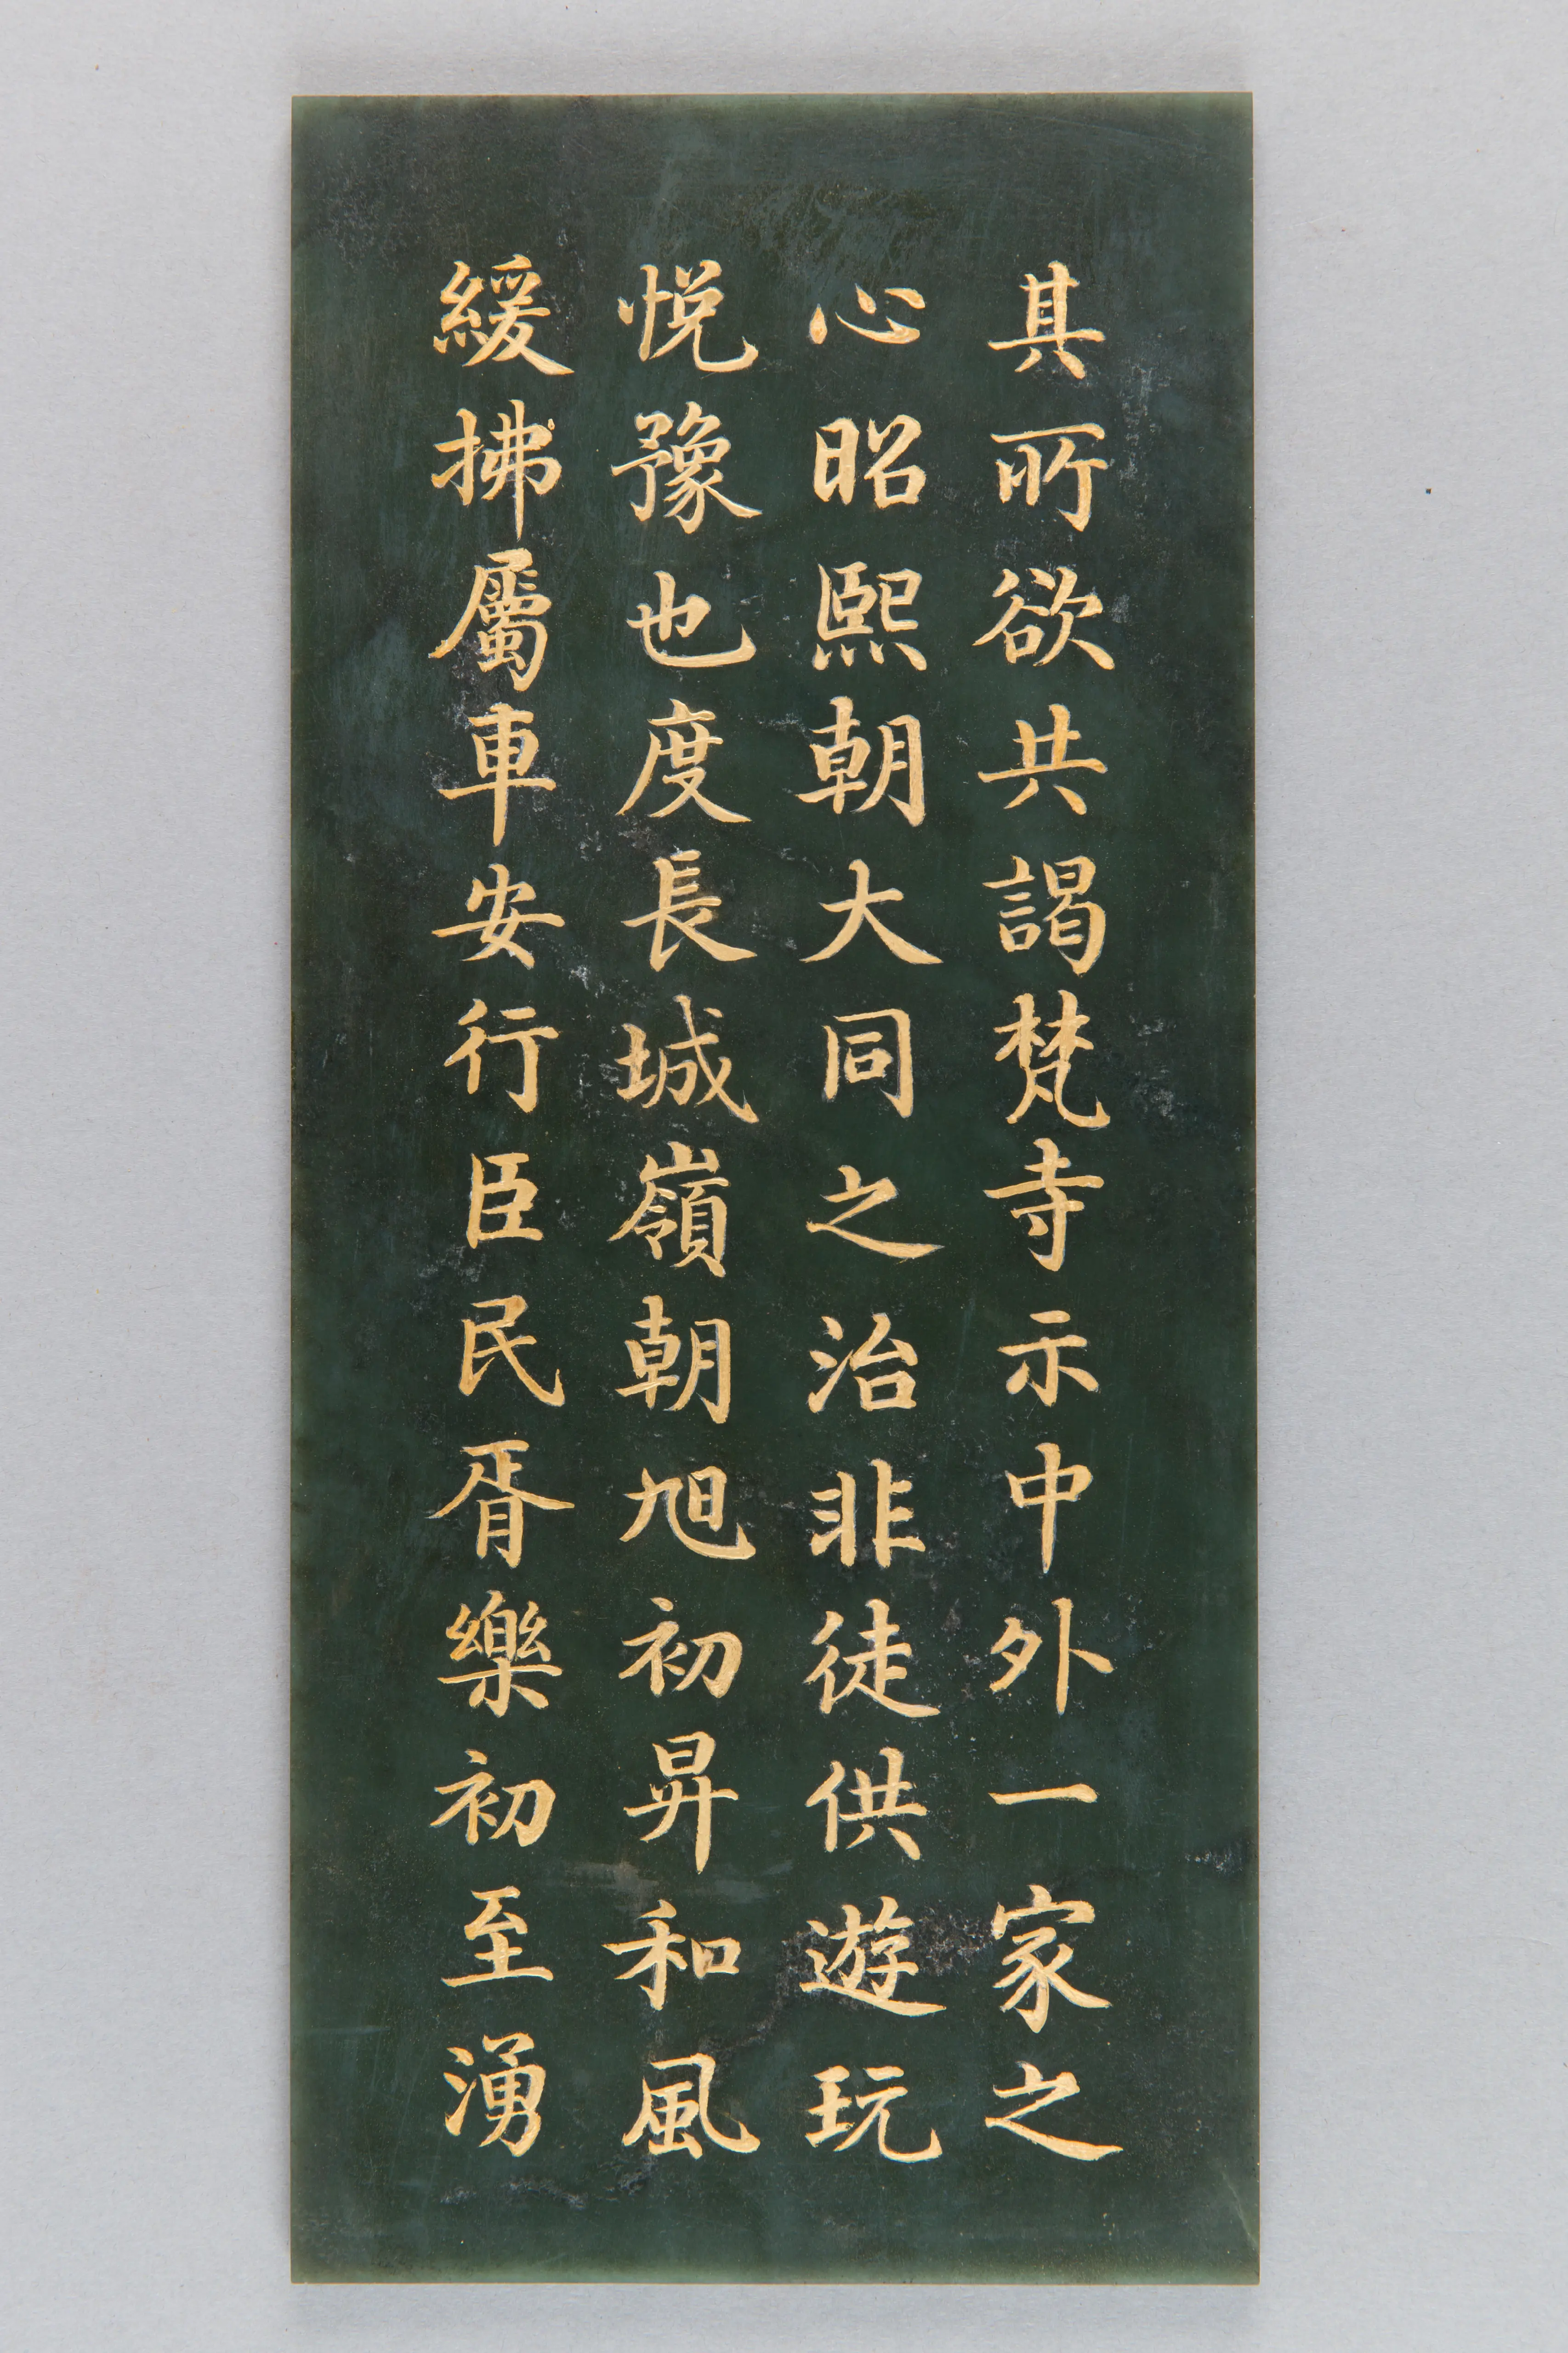 其所欲共謁梵寺示中外一家之
心昭熙朝大同之治非徒供遊玩
悦豫也度長城嶺朝旭初昇和風
緩拂屬車安行臣民胥樂初至湧